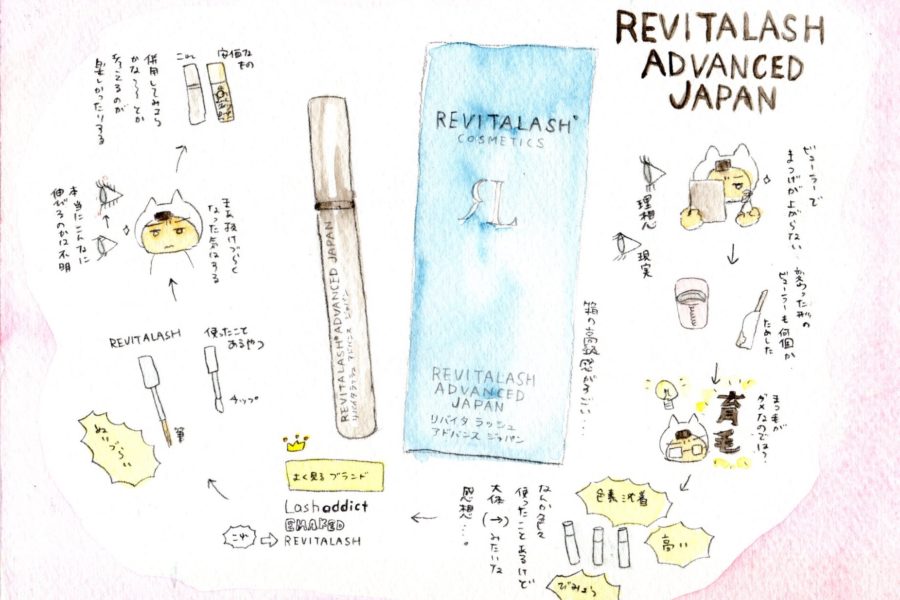 REVITALASH
ADVANCED
JAPAN
ビューラーで
まつげが上がらない
理想
現実
変わった形の
ビューラーも何個か
ためした
まつ毛が
ダメなのでは?
育毛
色素沈着
高い
びみょう
なんか色々
使ったことあるけど
大体(→)みたいな
感想…。
よく見るブランド
Lashaddict
EMAKED
REVITALASH
これ
REVITALASH
筆
ぬりづらい
使ったこと
あるやつ
チップ
まぁ抜けづらく
なった気はする
本当にこんなに
伸びるのかは不明
安価な
もの
これ
併用してみよう
かな〜〜とか
考えるのが
楽しかったりする
REVITALASH® ADVANCED JAPAN
リバイタラッシュ アドバンス ジャパン
REVITALASH®
COSMETICS
RL
REVITALASH
ADVANCED
JAPAN
リバイタ ラッシュ
アドバンス ジャパン
箱の高級感がすごい…